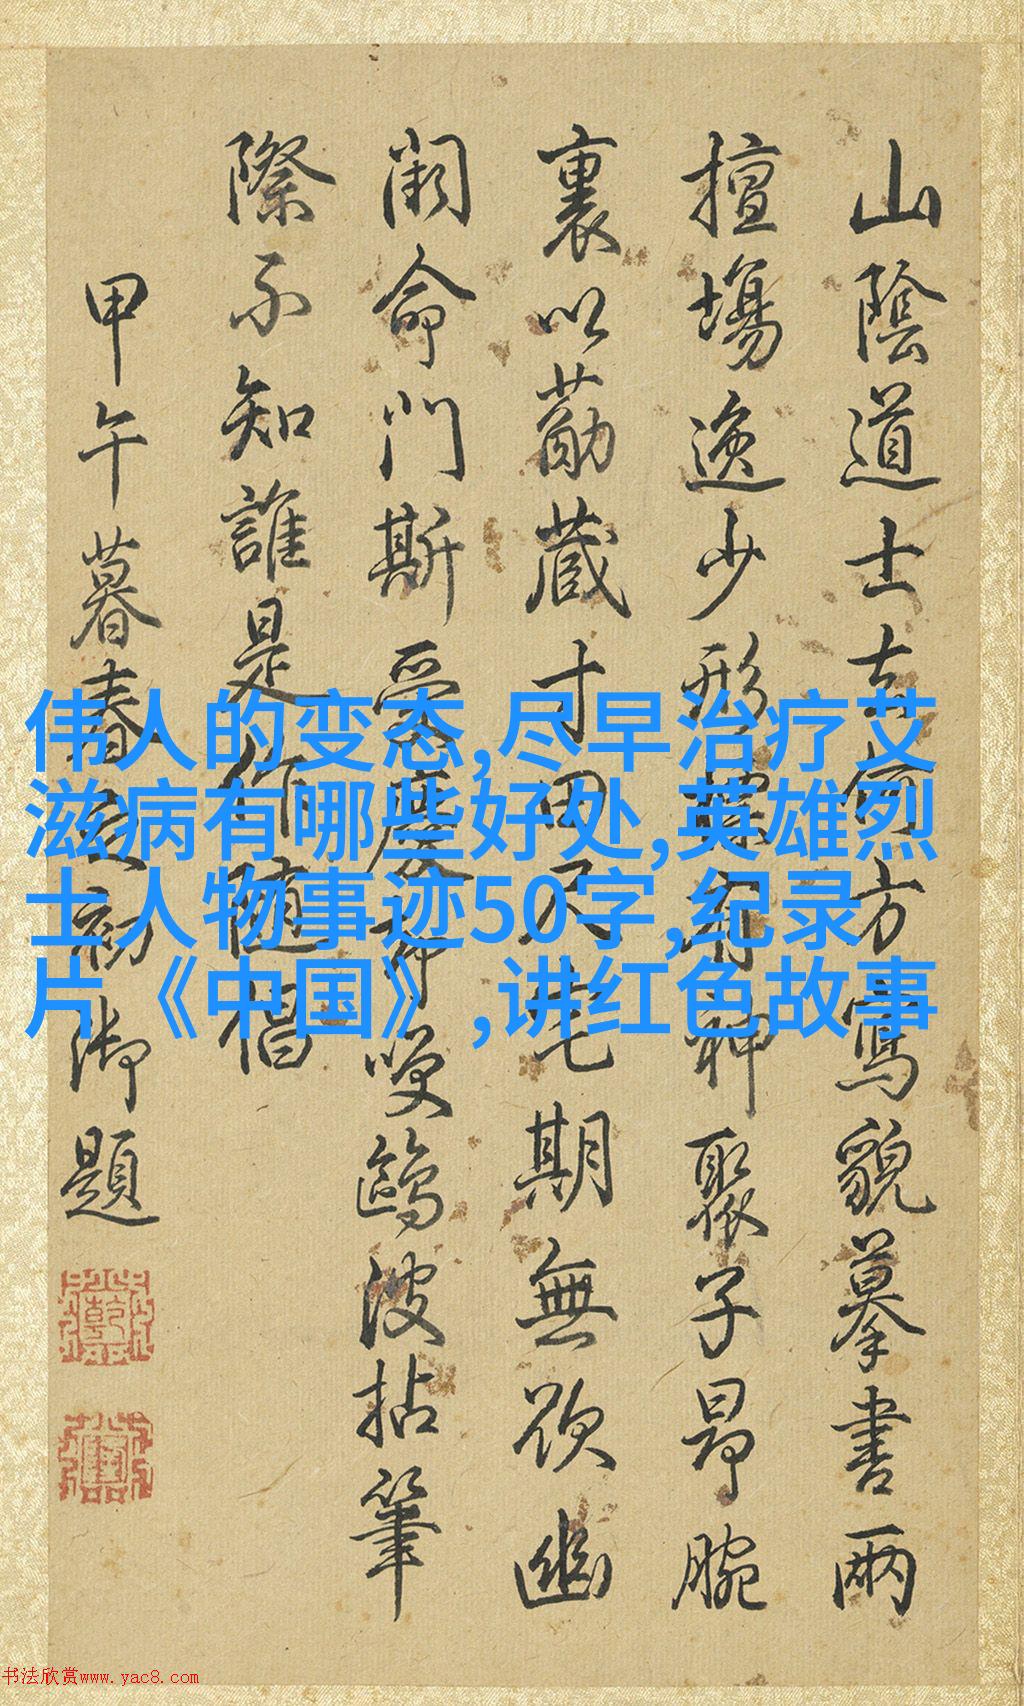 山陰道士去何方寫貌摹書兩
擅場逸少形神聚子昂腕
裏以藏寸田尺宅期無欲幽
闕命門斯受慶鷗波拈筆
際不知誰是作随倡
甲午暮春之初御題
伟人的变态,尽早治疗艾
滋病有哪些好处,英雄烈
士人物事迹50字,纪录
片《中国》,讲红色故事
书法欣赏www.yac8.com